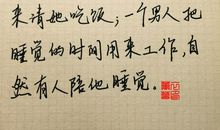 来请她吃饭；一个男人把
睡觉的时间用来工作，自
然有人陪他睡觉．